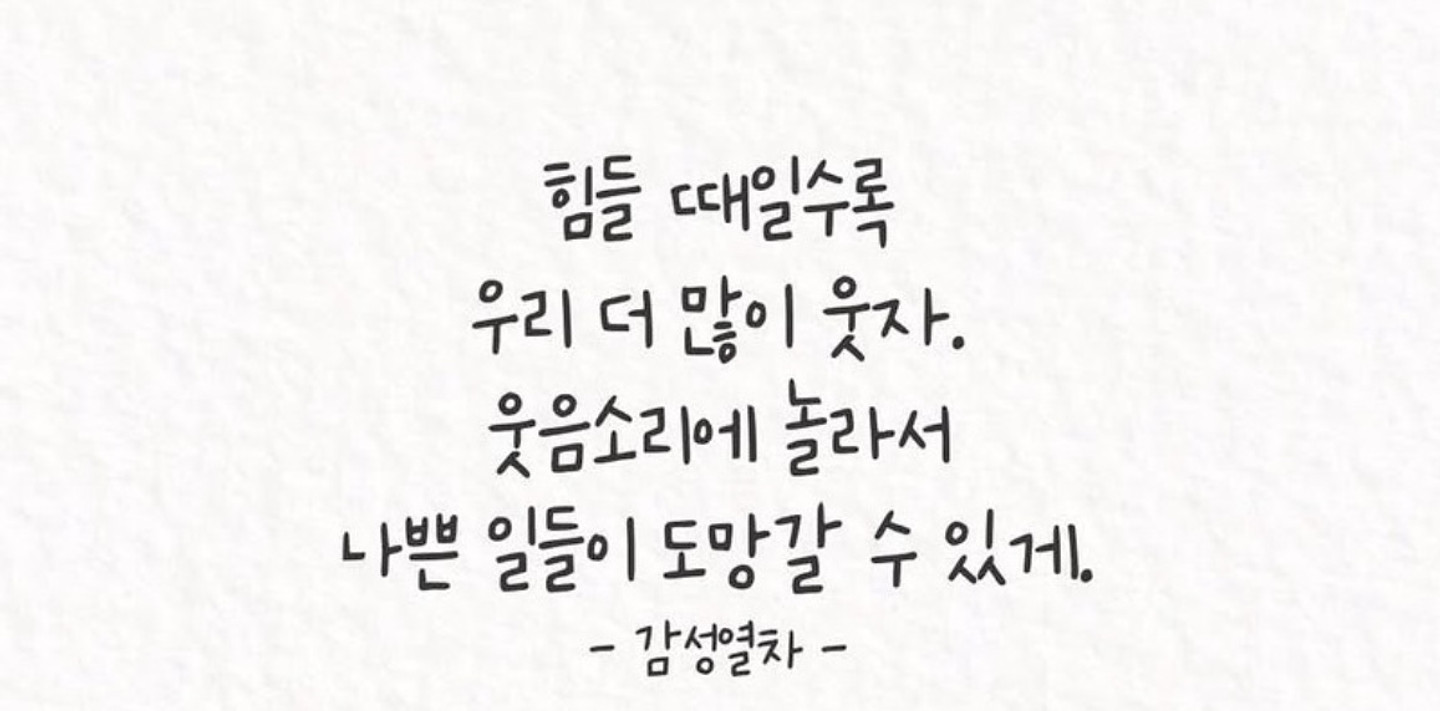 힘들 때일수록
우리 더 많이 웃자.
웃음소리에 놀라서
나쁜 일들이 도망갈 수 있게.
- 감성열차 -